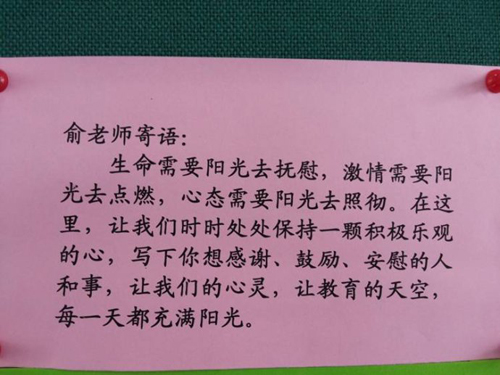 俞老师寄语：
生命需要阳光去抚慰，激情需要阳
光去点燃，心态需要阳光去照彻。在这
里，让我们时时处处保持一颗积极乐观
的心，写下你想感谢、鼓励、安慰的人
和事，让我们的心灵，让教育的天空，
每一天都充满阳光。